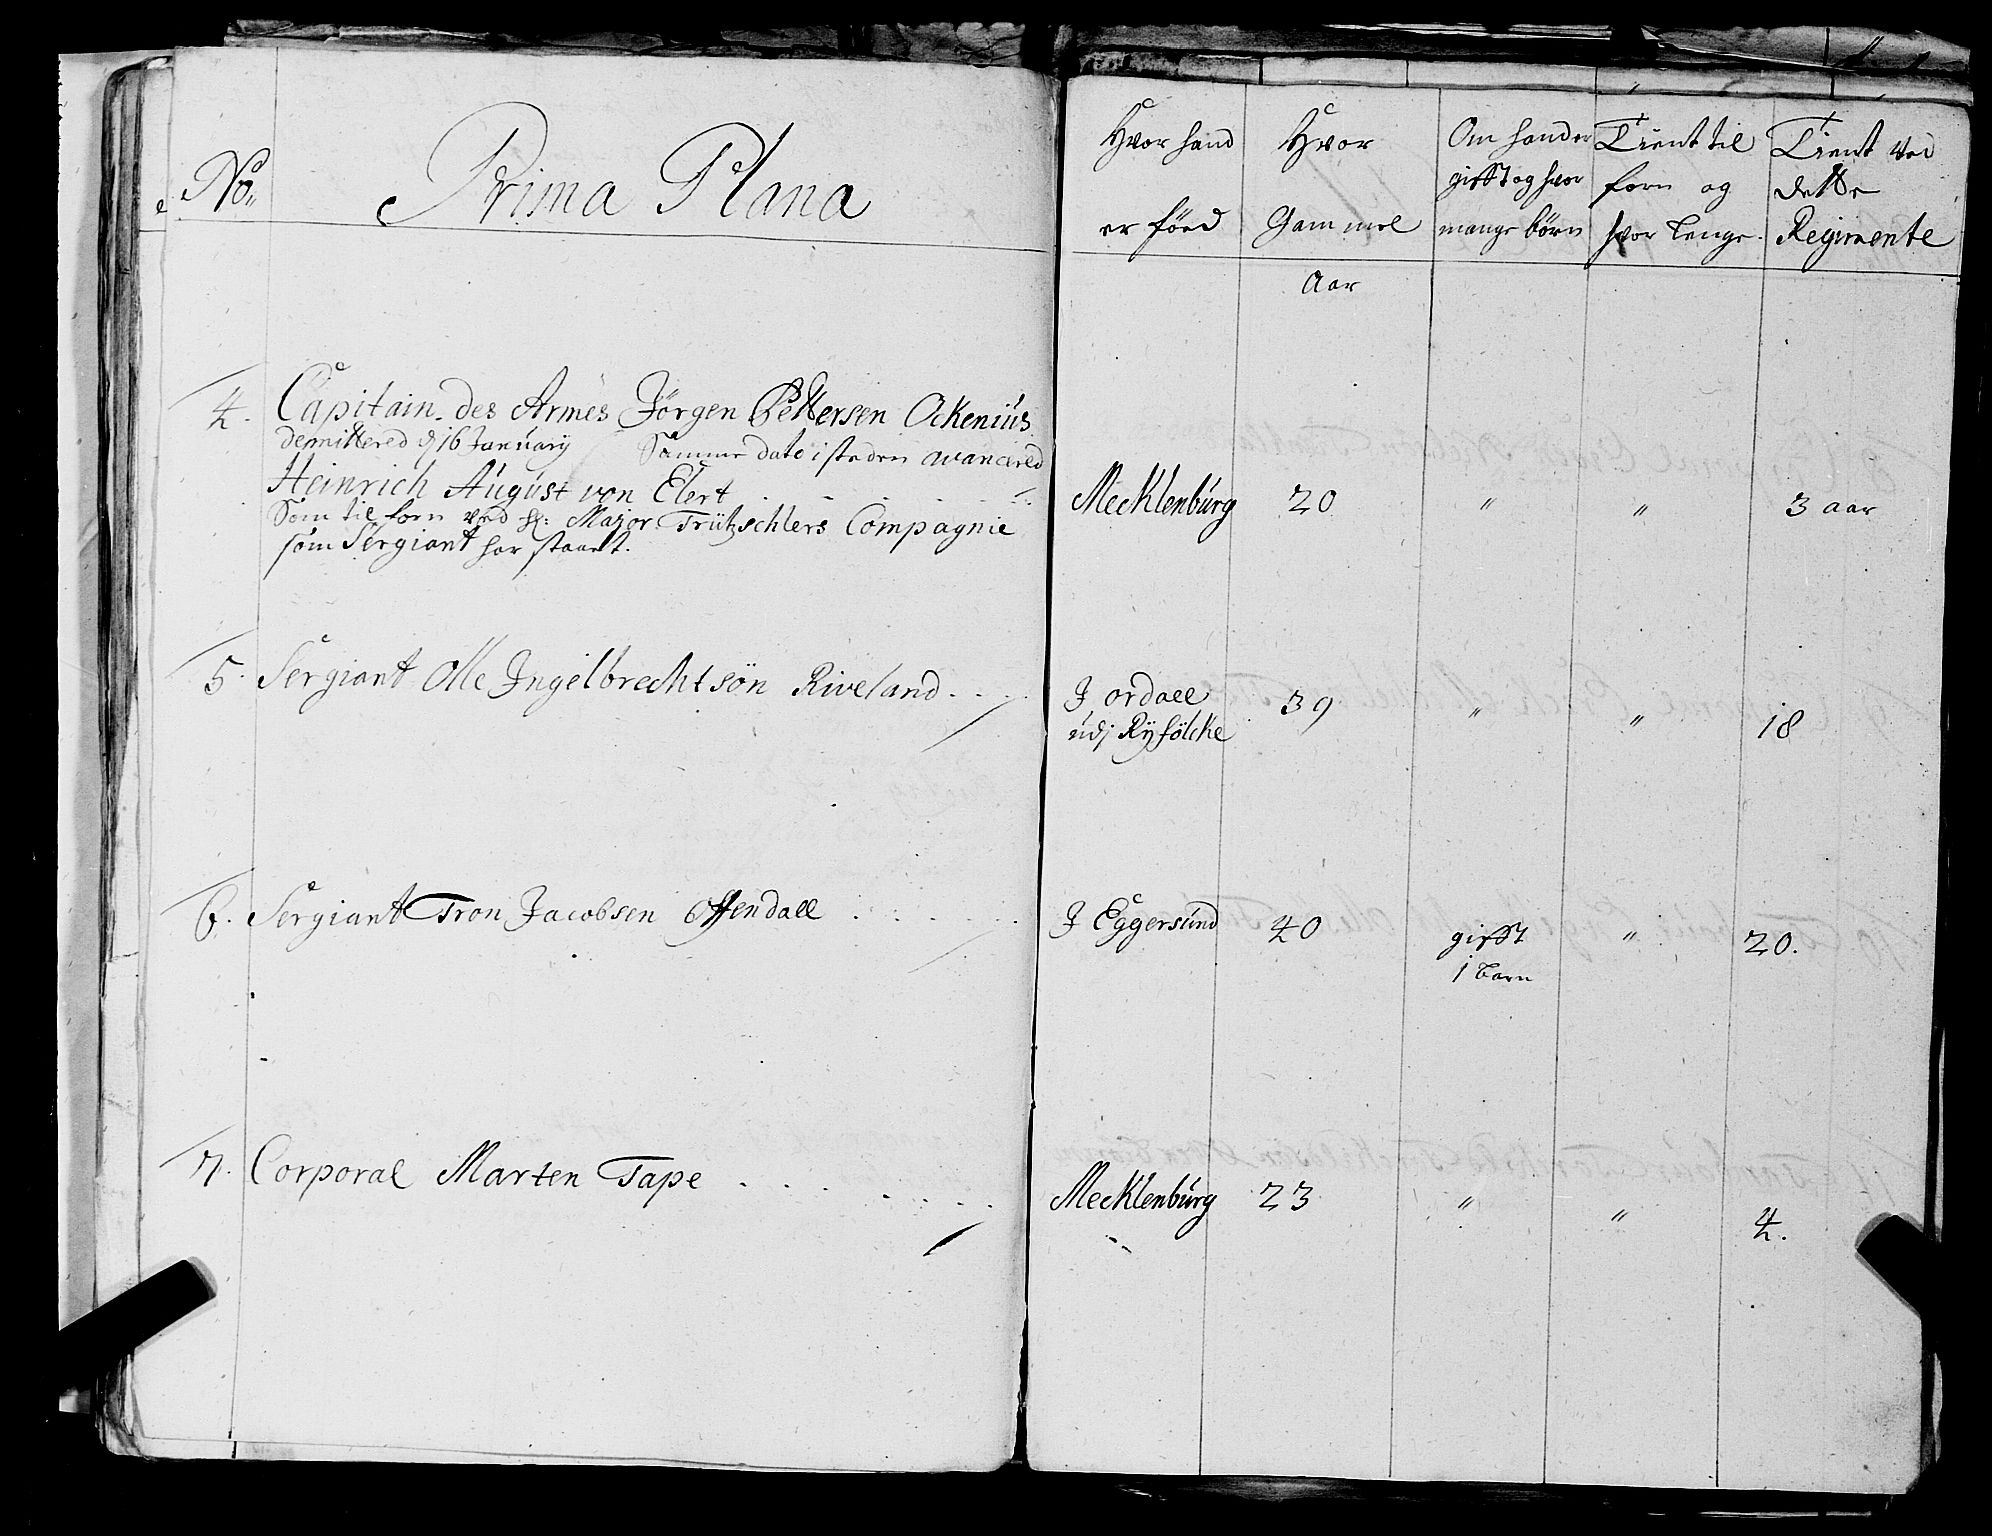 No.
Prima Plana
Hvor hand
er föed
Hvor
Gammel
Aar
Om hand er
gifft og hvor
mange börn
Tient til
forn og
hvor lenge
Tient ved
dette
Regimente
4. Capitain des Armes Jörgen Pettersen Ockenius
demittered d 16 January Samme dato i steden avancered
Heinrich August von Elert
Mecklenburg 20 " " 3 aar
Som til forn ved H: Major Trützschlers Compagnie
som Sergiant har staaet.
5. Sergiant Olle Ingelbrechtsön Riveland
J ordall 39 " " 18
udj Ryfölcke
6. Sergiant Tron Jacobsen Offendall
J Eggersund 40 gifft " 20.
1 barn
7. Corporal Marten Tape
Mecklenburg 23 " " 4.